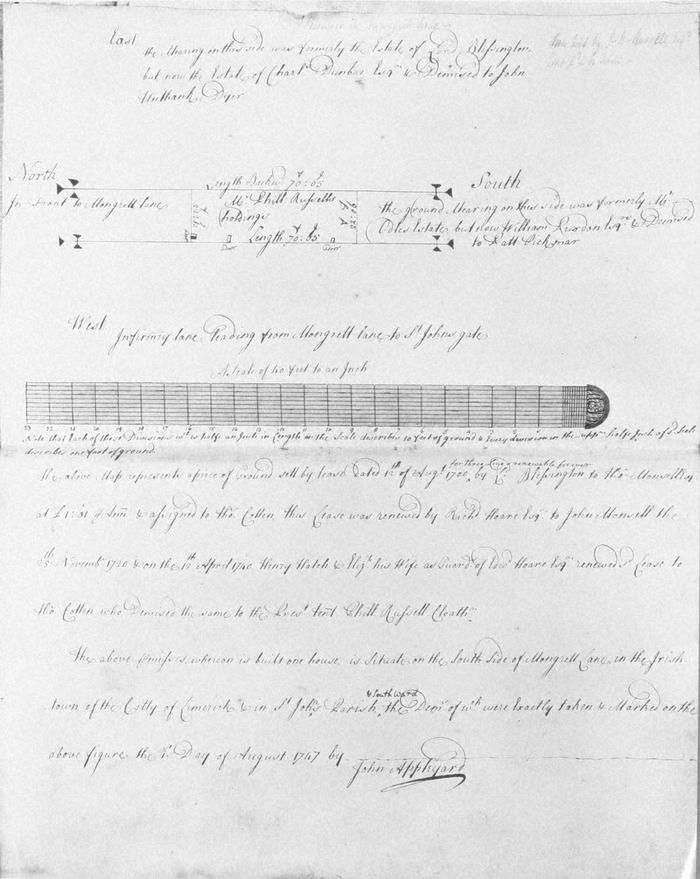 East
the Mearing on this side was formerly the Estate of Lord Blessington
but now the Estate of Charl.s Dunbar Esq.r & Demised to John
Unthank Dyer
North
In Front to Mongrett lane
Length Backw.d 70:05
M.r Phill Russells
holdings
Length 70:05
Door
Door
South
the ground Mearing on this side was formerly M.r
Odles Estate but now William Purdon Esq.re & Demised
to Patt
West
Infirmry lane leading from Mongrett lane to S.t Johns gate
A Scale of 40 feet to an Inch
Note that Each of these Divisions w.ch is halfe an Inch in Length in the Scale describes 20 feet of ground & Every division in the upp.r halfe Inch of s.d Scale
describes one foot of ground
for three lives renewable forever
The above Map represents a piece of Ground sett by lease Dated 12.th of Aug.t 1700 by L.d Blessington to tho.s Monsell Esq.r
at £1:01 p Ann & assigned to tho.s Cotten, this Lease was renewed by Rich.d Hoare Esq.r to John Monsell the
Novemb.r 1720 & on the 18.th April 1740 Henry Hatch & Eliz.h his Wife as Guard.s of Edw.d Hoare Esq.r renewed s.d Lease to
tho.s Cotten who Demised the same to the Pres.t ten.t Phill Russell Cloath.r
The above p.misses, whereon is built one house, is Situate on the South Side of Mongrett Lane, in the Irish
& Southward
town of the Citty of Limerick & in S.t John's Parish, the Dem.s of w.ch were Exactly taken & Marked on the
above figure the Day of August 1747 by
John Appleyard